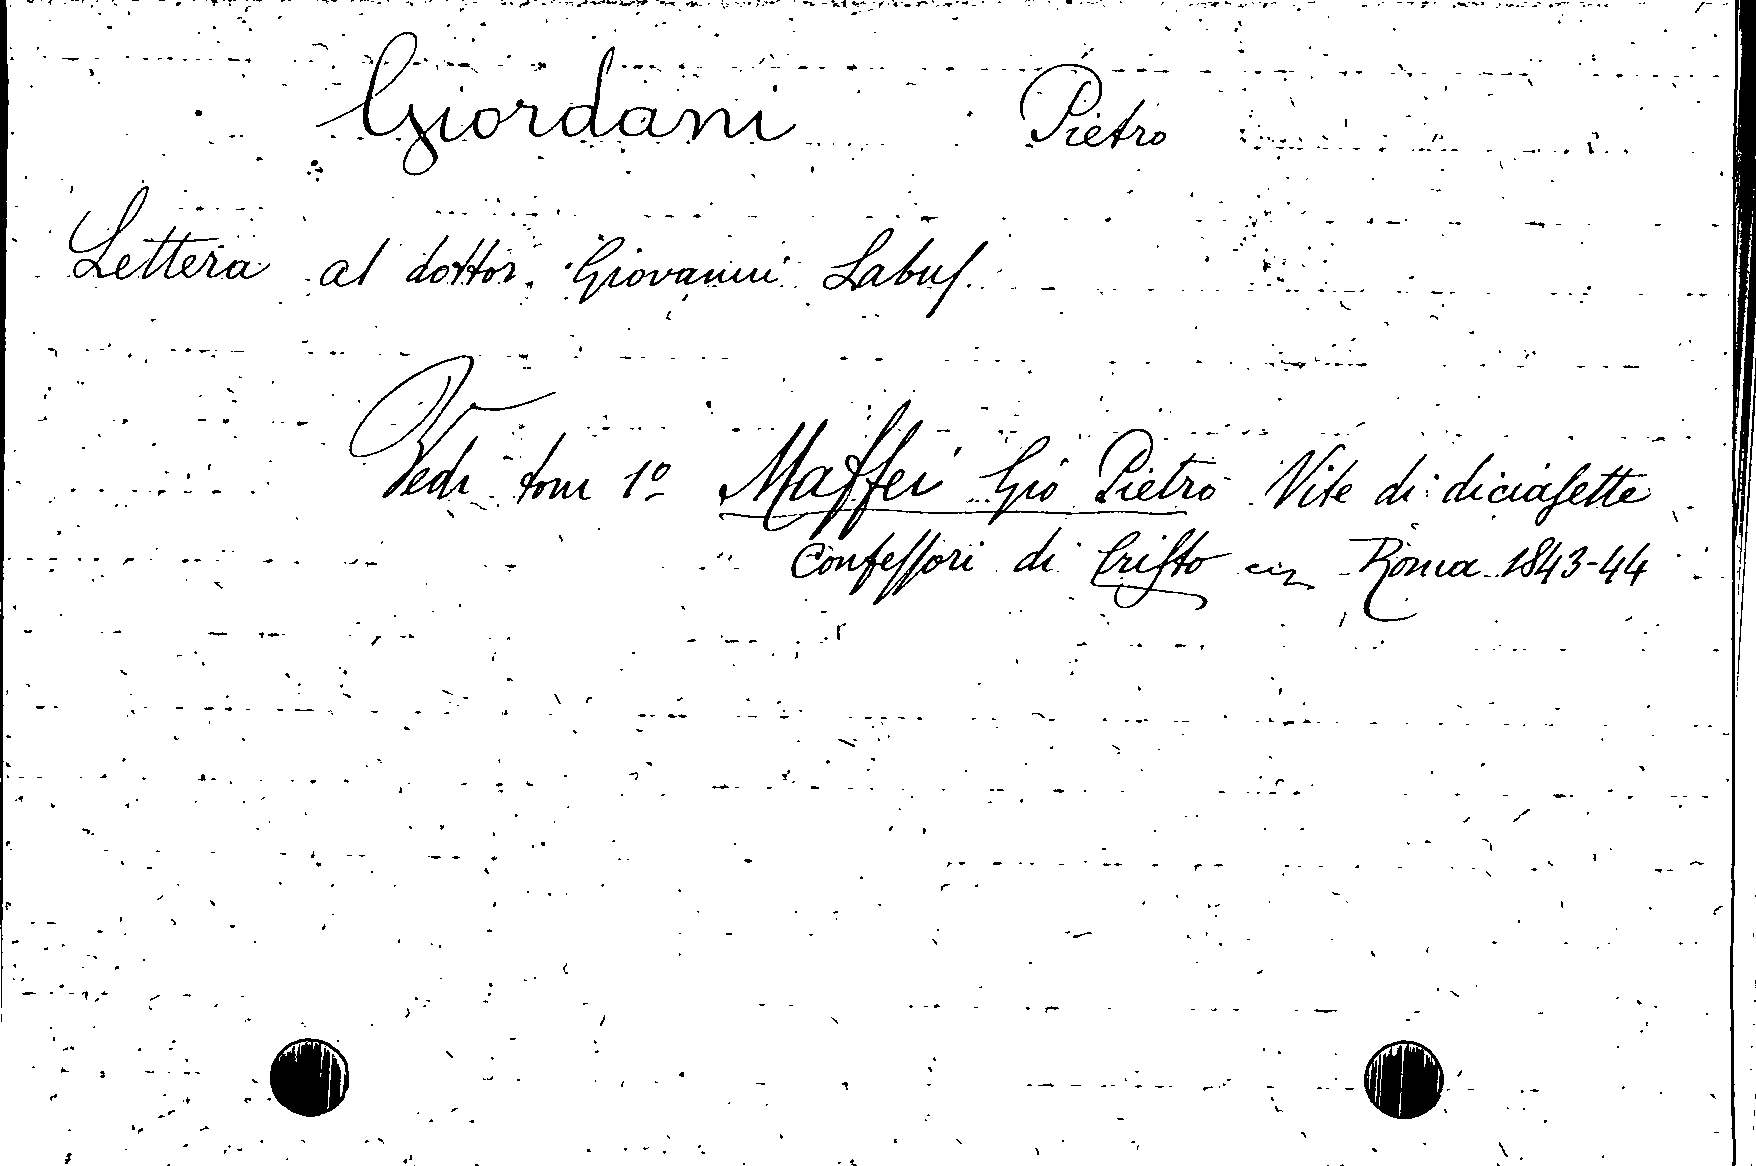 Giordani Pietro
Lettera al dottor Giovanni Labus.
Vedi tom 1º Maffei Gio Pietro Vite di diciasette
Confessori di Cristo Roma 1843-44